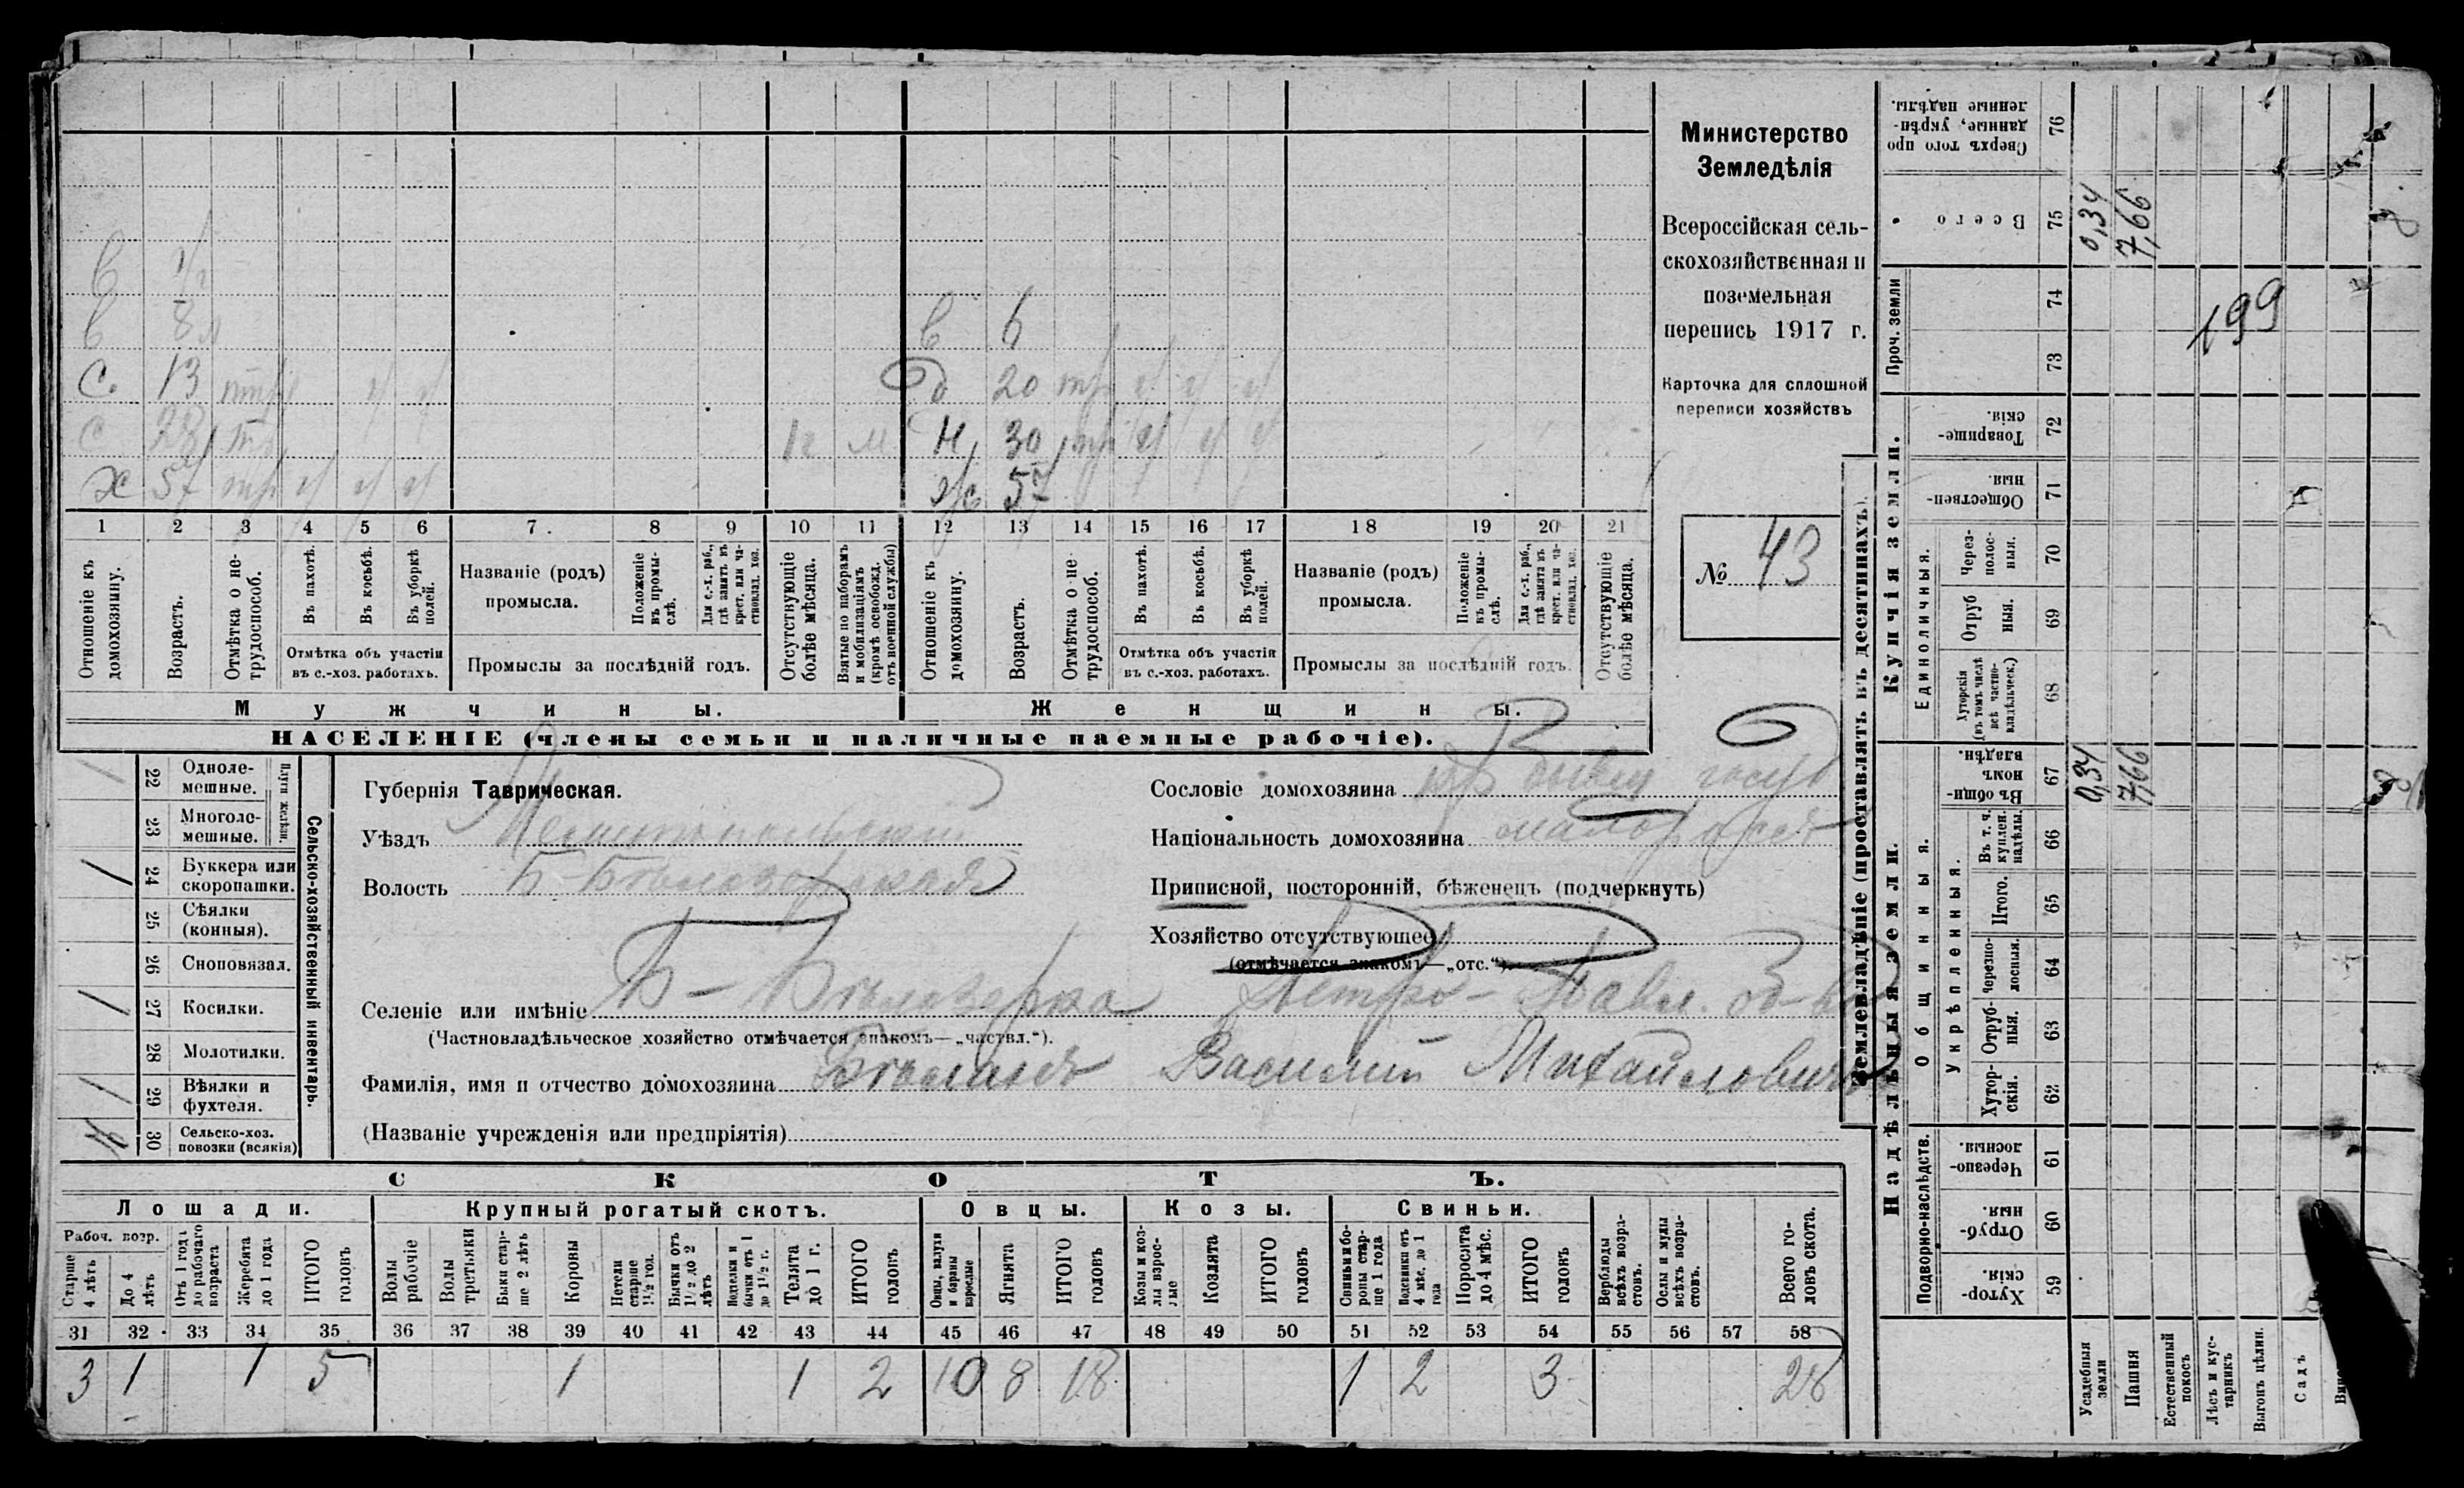 Министерство
Земледѣлія
Всероссійская сель-
скохозяйственная и
поземельная
перепись 1917 г.
Карточка для сплошной
переписи хозяйствъ
№ 43
в 1/2
в 8
в 6
с. 13
20
с 28
1 г м
н 30
х 57
ж 57
1 2 3 4 5 6 7. 8 9 10 11 12 13 14 15 16 17 18 19 20 21
Отношеніе къ домохозяину.
Возрастъ.
Отмѣтка о не-трудоспособ.
Въ пахотѣ.
Въ косьбѣ.
Въ уборкѣ полей.
Отмѣтка объ участіи
въ с.-хоз. работахъ.
Названіе (родъ)
промысла.
Положеніе въ промы-слѣ.
Для с.-х. раб., гдѣ занятъ въ крест. или ча-стновлад. хоз.
Промыслы за послѣдній годъ.
Отсутствующіе болѣе мѣсяца.
Взятые по наборамъ и мобилизаціямъ (кромѣ освобожд. отъ военной службы)
Отношеніе къ домохозяину.
Возрастъ.
Отмѣтка о не трудоспособ.
Въ пахотѣ.
Въ косьбѣ.
Въ уборкѣ полей.
Отмѣтка объ участіи
въ с.-хоз. работахъ.
Названіе (родъ)
промысла.
Положеніе въ промы-слѣ.
Для с.-х. раб., гдѣ занята въ крест. или ча-стновлад. хоз.
Промыслы за послѣдній годъ.
Отсутствующіе болѣе мѣсяца.
Мужчины.
Женщины.
НАСЕЛЕНІЕ (члены семьи и наличные наемные рабочіе).
22 Одноле-мешные.
23 Многоле-мешные.
Плуги желѣзн.
24 Буккера или скоропашки. 1
25 Сѣялки (конныя).
26 Сноповязал.
27 Косилки. 1
28 Молотилки.
29 Вѣялки и фухтеля. 1
30 Сельско-хоз. повозки (всякія)
Сельско-хозяйственный инвентарь.
Губернія Таврическая.
Уѣздъ Мелитопольскій
Волость Б-Бѣлозерская
Сословіе домохозяина кр бывш госуд
Національность домохозяина малоросс
Приписной, посторонній, бѣженецъ (подчеркнуть)
Хозяйство отсутствующее
(отмѣчается знакомъ—„отс.“).
Селеніе или имѣніе Б-Бѣлозерка Петро-Павл. об-во
(Частновладѣльческое хозяйство отмѣчается знакомъ—„частвл.“).
Фамилія, имя и отчество домохозяина Василий Михайлович
(Названіе учрежденія или предпріятія)
СКОТЪ.
Лошади.
Крупный рогатый скотъ.
Овцы.
Козы.
Свиньи.
Рабоч. возр.
Старше 4 лѣтъ
До 4 лѣтъ
Отъ 1 года до рабочаго возраста
Жеребята до 1 года
ИТОГО головъ
Волы рабочіе
Волы третьяки
Быки стар-ше 2 лѣтъ
Коровы
Нетели старше 1½ год.
Бычки отъ 1½ до 2 лѣтъ
Подтелки и бычки отъ 1 до 1½ г.
Телята до 1 г.
ИТОГО головъ
Овцы, валухи и бараны взрослые
Ягнята
ИТОГО головъ
Козы и коз-лы взрос-лые
Козлята
ИТОГО головъ
Свиньи и бо-ровы стар-ше 1 года
Подсвинки отъ 4 мѣс. до 1 года
Поросята до 4 мѣс.
ИТОГО головъ
Верблюды всѣхъ возра-стовъ.
Ослы и мулы всѣхъ возра-стовъ.
Всего го-ловъ скота.
31 32 33 34 35 36 37 38 39 40 41 42 43 44 45 46 47 48 49 50 51 52 53 54 55 56 57 58
3 1 1 5 1 1 2 10 8 18 1 2 3 28
Землевладѣніе (проставлять въ десятинахъ).
Надѣльныя земли.
Купчія земли.
Проч. земли
Подворно-наслѣдств.
Общинныя.
Укрѣпленныя.
Единоличныя.
Сверхъ того про данные, укрѣп-ленные надѣлы. 76
Всего 75 0,34 7,66
74
73
199
Товарище-скія. 72
Обществен-ныя. 71
Через-полос-ныя. 70
Отруб ныя. 69
Хуторскія (въ томъ числѣ всѣ частно-владѣльческ.) 68
Въ общин-номъ владѣн. 67 0,34 7,66
Въ т. ч. куплен. надѣлы. 66
Итого. 65
Черезпо-лосныя. 64
Отруб-ныя. 63
Хутор-скія. 62
Черезпо-лосныя. 61
Отруб-ныя. 60
Хутор-скія. 59
Усадебныя земли
Пашня
Естественный покосъ
Лѣсъ и кус-тарникъ
Выгонъ цѣлин.
Садъ